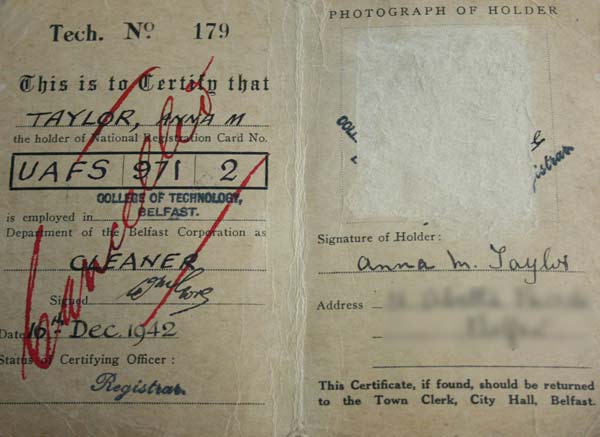 Tech. Nº 179
This is to Certify that
TAYLOR, ANNA M
the holder of National Registration Card No.
UAFS 971 2
COLLEGE OF TECHNOLOGY,
BELFAST.
is employed in
Department of the Belfast Corporation as
CLEANER
Signed
Date 16th Dec. 1942
Status of Certifying Officer :
Registrar
Cancelled
PHOTOGRAPH OF HOLDER
COLL
istrar
Signature of Holder :
Anna M. Taylor
Address
This Certificate, if found, should be returned
to the Town Clerk, City Hall, Belfast.